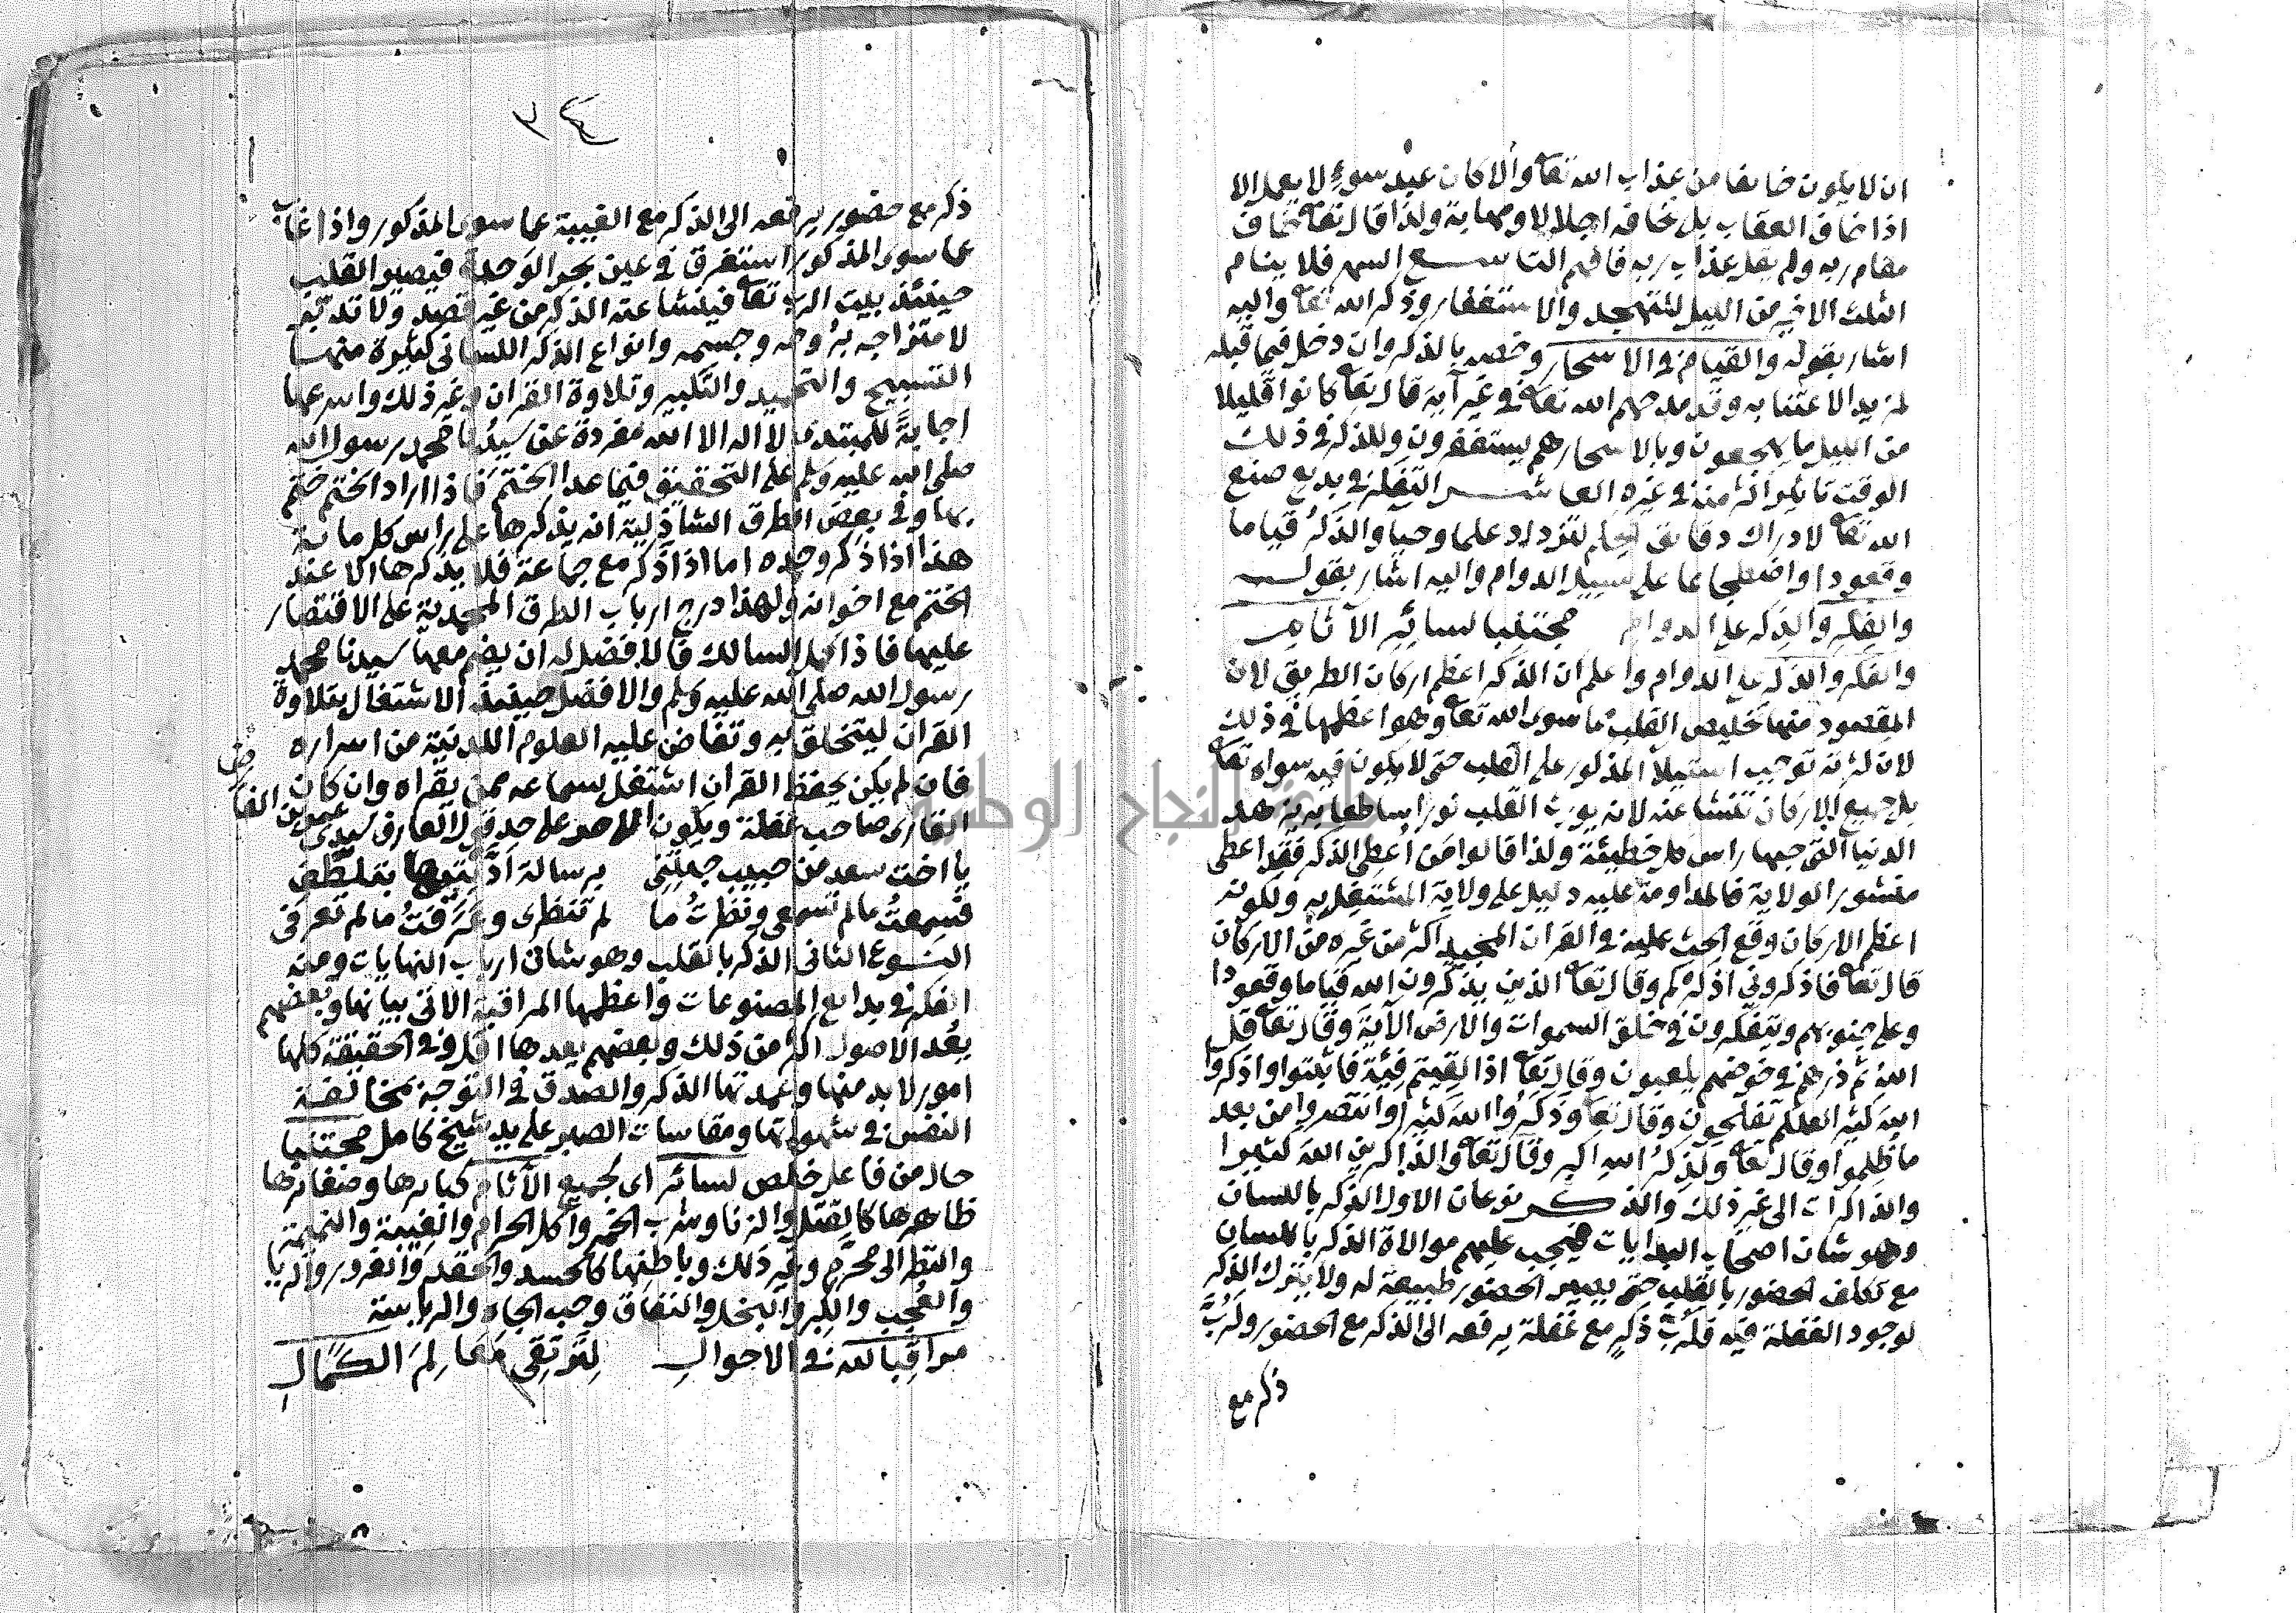 ان لا يكون خايفا من عذاب الله تعا والا كان عبد سوء لا يعمل الا
اذا خاف العقاب بل يخافه اجلالا ومهابة ولذا قال تعا خاف
مقام ربه ولم يقل عذاب ربه فافهم التاسع السهر فلا ينام
الثلث الاخير من الليل للتهجد والاستغفار وذكر الله تعا واليه
اشار بقوله والقيام في الاسحار وخصه بالذكر وان دخل فيما قبله
لمزيد الاعتنا به وقد مدحهم الله تعا في غير آية قال تعا كانوا قليلا
من الليل ما يهجعون وبالاسحار هم يستغفرون وللذكر في ذلك
الوقت تاثير اكثر منه في غيره العاشر التفكر في بديع صنع
الله تعا لادراك دقايق الحكم لتزداد علما وحبا والذكر قياما
وقعودا واضطجاعا على سبيل الدوام واليه اشار بقوله
والفكر والذكر على الدوام مجتنبا لسائر الآثام
والفكر والذكر على الدوام واعلم ان الذكر اعظم اركان الطريق لان
المقصود منها تخليص القلب مما سوى الله تعا وهو اعظمها في ذلك
لان كثرته توجب استيلا المذكور على القلب حتى لا يكون فيه سواه تعا
بل جميع الاركان تنشا عنه لانه يورث القلب نورا ساطعا به يزهد
الدنيا التي حبها راس كل خطيئة ولذا قالوا من اعطى الذكر فقد اعطى
منشور الولاية فالمداومة عليه دليل على ولاية المشتغل به ولكونه
اعظم الاركان وقع الحث عليه في القران المجيد اكثر من غيره من الاركان
قال تعا فاذكروني اذكركم وقال تعا الذين يذكرون الله قياما وقعودا
وعلى جنوبهم ويتفكرون في خلق السموات والارض الآية وقال تعا قل
الله ثم ذرهم في خوضهم يلعبون وقال تعا اذا لقيتم فئة فاثبتوا واذكروا
الله كثيرا لعلكم تفلحون وقال تعا وذكروا الله كثيرا وانتصروا من بعد
ما ظلموا وقال تعا ولذكر الله اكبر وقال تعا والذاكرين الله كثيرا
والذاكرات الى غير ذلك والذكر نوعان الاول الذكر باللسان
وهو شان اصحاب البدايات فيجب عليهم موالاة الذكر باللسان
مع تكلف الحضور بالقلب حتى يصير الحضور طبيعة له ولا يترك الذكر
لوجود الغفلة فيه فلرب ذكر مع غفلة يرفعه الى الذكر مع الحضور ولرب
ذكر مع
٣٤
ذكر مع حضور يرفعه الى الذكر مع الغيبة عما سوى المذكور واذا غاب
عما سوى المذكور استغرق في عين بحر الوحدة فيصير القلب
حينئذ بيت الرب تعا فينشا عنه الذكر من غير قصد ولا تدبر
لامتزاجه بروحه وجسمه وانواع الذكر اللساني كثيرة منها
التسبيح والتحميد والتكبير وتلاوة القران وغير ذلك واسرعها
اجابة للمبتدى لا اله الا الله مفردة عن سيدنا محمد رسول الله
صلى الله عليه وسلم على التحقيق فيما عدا الختم فاذا اراد الختم ختم
بها وفي بعض الطرق الشاذلية انه يذكرها على راس كل ماية
هذا اذا ذكر وحده اما اذا ذكر مع جماعة فلا يذكرها الا عند
الختم مع اخوانه ولهذا درج ارباب الطرق المحمدية على الاقتصار
عليها فاذا كمل السالك فالافضل له ان يضم معها سيدنا محمد
رسول الله صلى الله عليه وسلم والافضل حينئذ الاشتغال بتلاوة
القران ليتخلق به وتفاض عليه العلوم اللدنية من اسراره
فان لم يكن يحفظ القران اشتغل بسماعه ممن يقراه وان كان
القارى صاحب غفلة ويكون على حد قول العارف سيدى
عمر بن الفارض
يا اخت سعد من حبيب جئتني برسالة اديتها بتلطف
فسمعت ما لم تسمعي ونظرت ما لم تنظرى وعرفت ما لم تعرفى
النوع الثانى الذكر بالقلب وهو شان ارباب النهايات ومنه
الفكر في بدايع المصنوعات واعظمها المراقبة الاتى بيانها وبعضهم
يعد الاصول اكثر من ذلك وبعضهم يعدها اقل وفي الحقيقة كلها
امور لا بد منها وعمدتها الذكر والصدق في التوجه مخالفة
النفس في شهواتها ومقاسات الصبر على يد شيخ كامل مجتنبا
حال من فاعل خلص لسائر اى لجميع الآثام كبايرها وصغائرها
ظاهرها كالقتل والزنا وشرب الخمر واكل الحرام والغيبة والنميمة
والنظر الى محرم وغير ذلك وباطنها كالحسد والحقد والغرور والريا
والعجب والكبر والبخل والنفاق وحب الجاه والرياسة
مراقبا لله في الاحوال لترتقى معالم الكمال